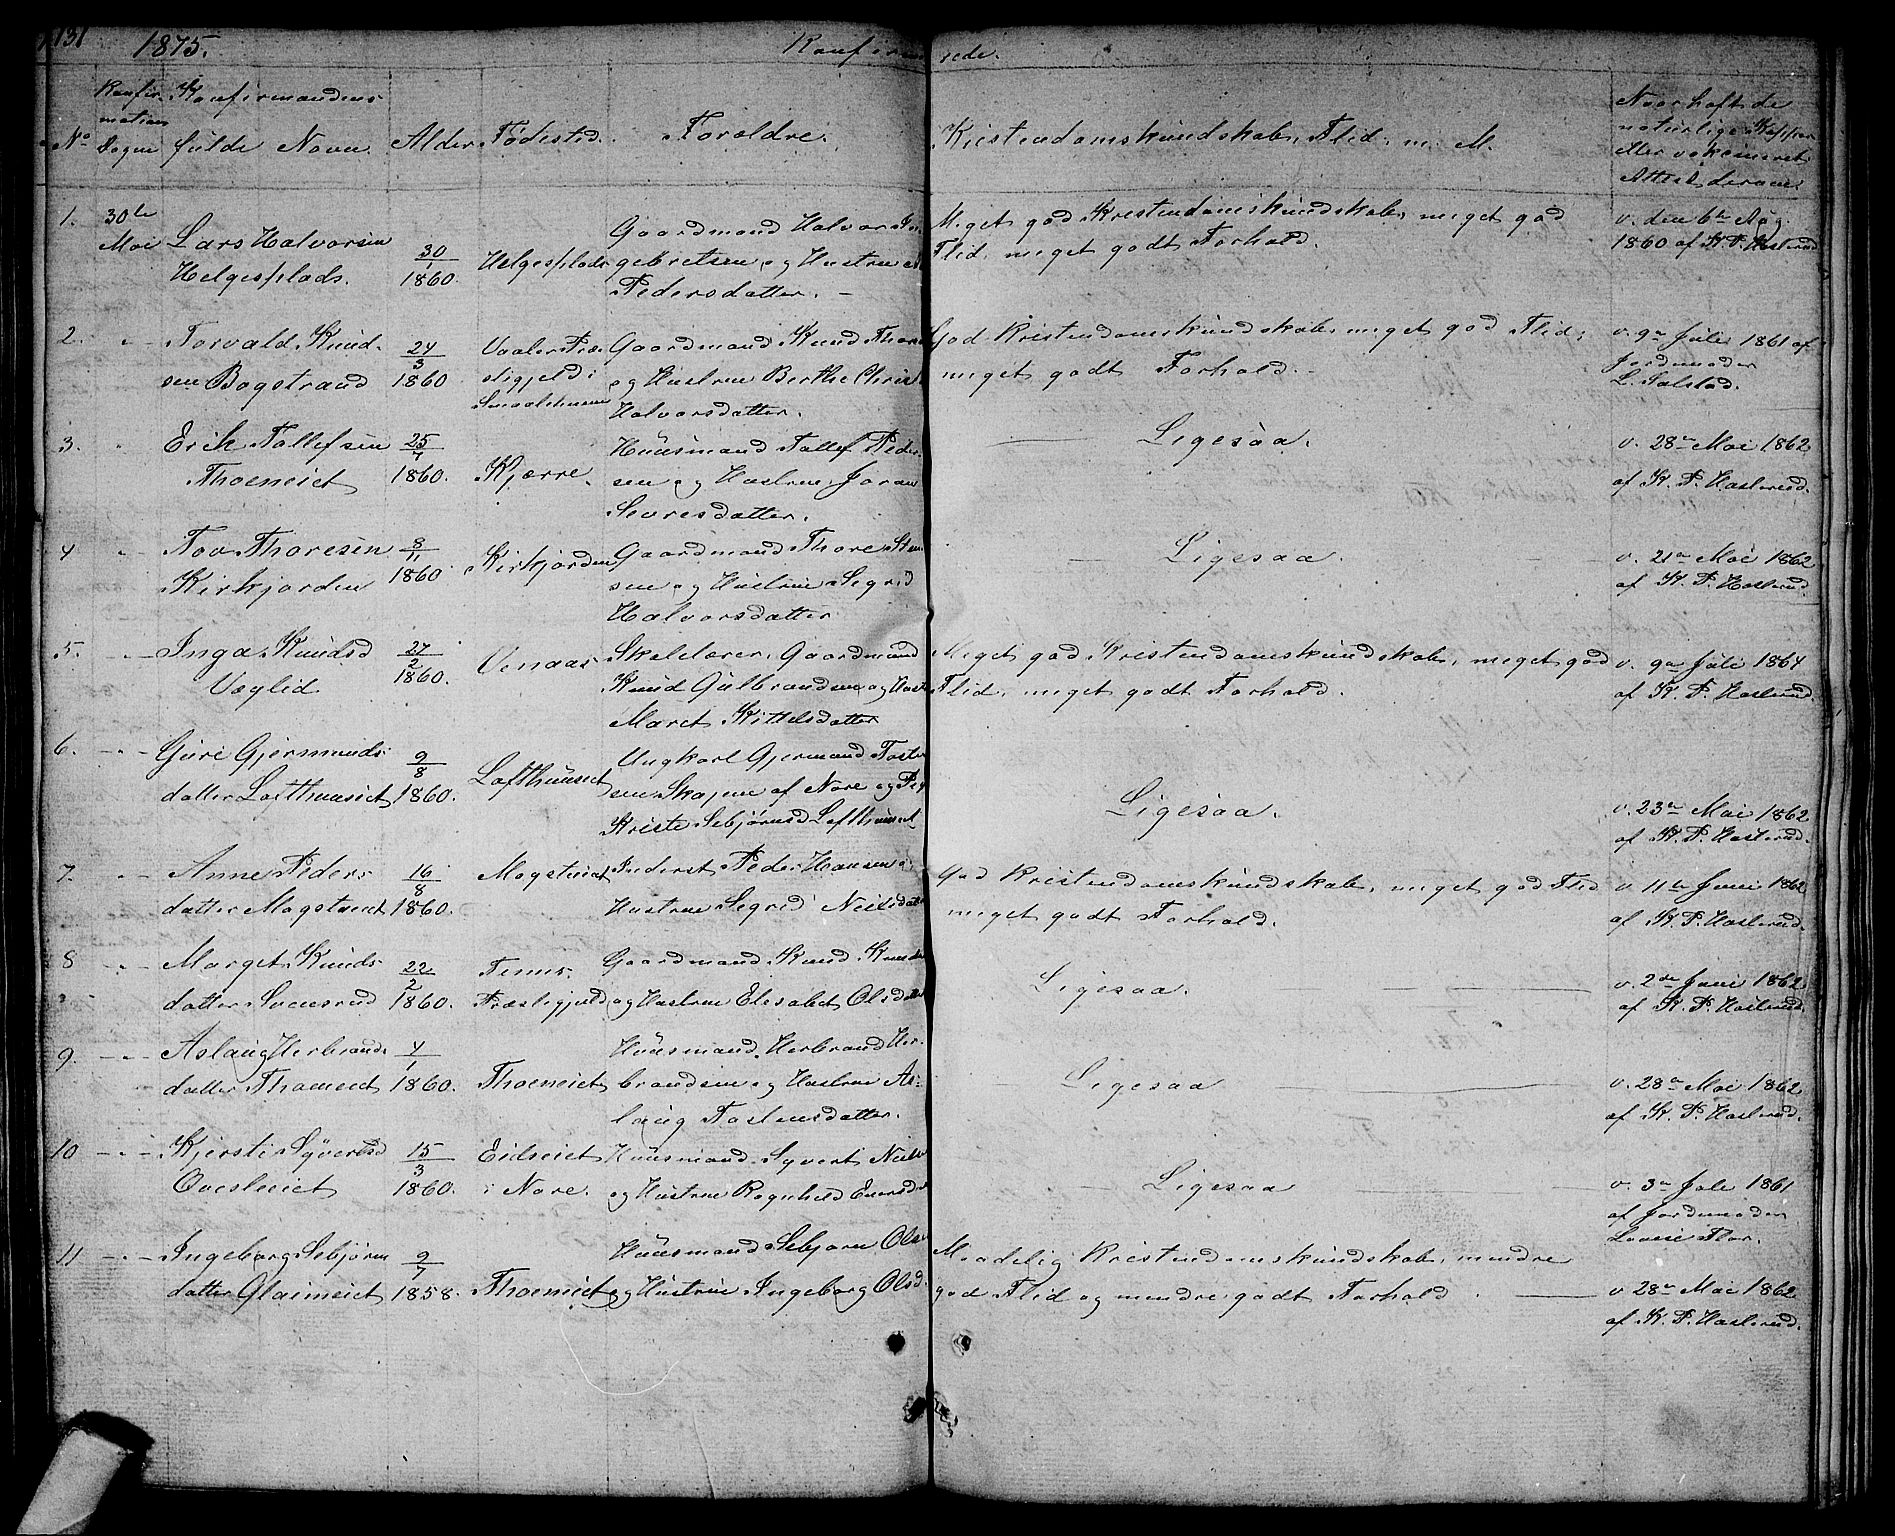 131 1875. Konfirmerede.
No
Konfirmations Dagen
Konfirmandens fulde Navn.
Alder
Fødested.
Forældre.
Kristendomskundskab, Flid, m. M.
Naar haft de naturlige Kopper eller vakcineret. Attest derom.
1. 30te Mai Lars Halvorsen Helgesplads. 30/1 1860. Helgesplads Gaardmand Halvor In-
gebretsen og Hustrue
Pedersdatter. –
Meget god Kristendomskundskab, meget god
Flid, meget godt Forhold.
v. den 6te Aug.
1860 af K. P. Haslerud
2. – " – Torvald Knud-
sen Bagstrand 24/3 1860. Vaaler Præ-
stigjeld i
Smaalehnene
Gaardmand Knud Thor
og Hustrue Berthe Christ
Halvorsdatter.
God Kristendomskundskab, meget god Flid,
meget godt Forhold. –
v. 9de Juli 1861 af
Jordmoder
L. Salstad.
3. " Erik Tollefsen
Thoeneiet 25/7 1860. Kjærre. Huusmand Tollef Peder-
sen og Hustrue Joran
Sevresdatter.
Ligesaa.
v. 28de Mai 1862
af K. P. Haslerud.
4 – " – Tov Thoresen
Kirkjorden 8/11 1860. Kirkjorden Gaardmand Thore
sen og Hustrue Segrid
Halvorsdatter
Ligesaa.
v. 21de Mai 1862
af K. P. Haslerud.
5. – " – Inga Knudsd
Væglid 27/2 1860. Venaas Skolelærer, Gaardmand
Knud Gulbrandsen og Hust
Maret Kittelsdatter
Meget god Kristendomskundskab, meget god
Flid, meget godt Forhold.
v. 9de Juli 1864
af K. P. Haslerud.
6. – " – Guri Gjermunds-
datter Lofthuuseiet 9/8 1860. Lofthuuseiet Ungkarl Gjermund Tosten
sen Skajem af Nore og Pig
Kriste Sebjørnsd Lofthuuset
Ligesaa.
v. 23de Mai 1862
af K. P. Haslerud.
7. – " – Anne Peders-
datter Mogstueiet 16/8 1860. Mogstueiet Inderst Peder Hansen og
Hustrue Segrid Neilsdat
God Kristendomskundskab, meget god Flid
meget godt Forhold.
v. 11te Juni 1862
af K. P. Haslerud.
8 – " – Marget Knuds-
datter Svensrud 22/2 1860. Tinns
Præstigjeld Gaardmand Knud Knudsen
og Hustrue Elesabet Olsdat
Ligesaa.
v. 2den Juni 1862
af K. P. Haslerud.
9. – " – Aslaug Herbrands-
datter Thoeneiet 4/1 1860. Thoeneiet Huusmand Herbrand Her-
brandsen og Hustrue As-
laug Tostensdatter.
Ligesaa
v. 28de Mai 1862
af K. P. Haslerud.
10 – " – Kjersti Syversd
Oveslieiet 15/3 1860. Eidseiet
i Nore. Huusmand Syvert Neils
og Hustrue Ragnhild Evensd
Ligesaa
v. 3de Juli 1861
af Jordemoder
Lovise Flor.
11 – " – Ingeborg Sebjørns
datter Gløimeiet 9/7 1858. Thoeneiet Huusmand Sebjørn Ols
og Hustrue Ingeborg Olsd.
Maadelig Kristendomskundskab, mindre
god Flid og mindre godt Forhold.
v. 28de Mai 1862
af K. P. Haslerud.